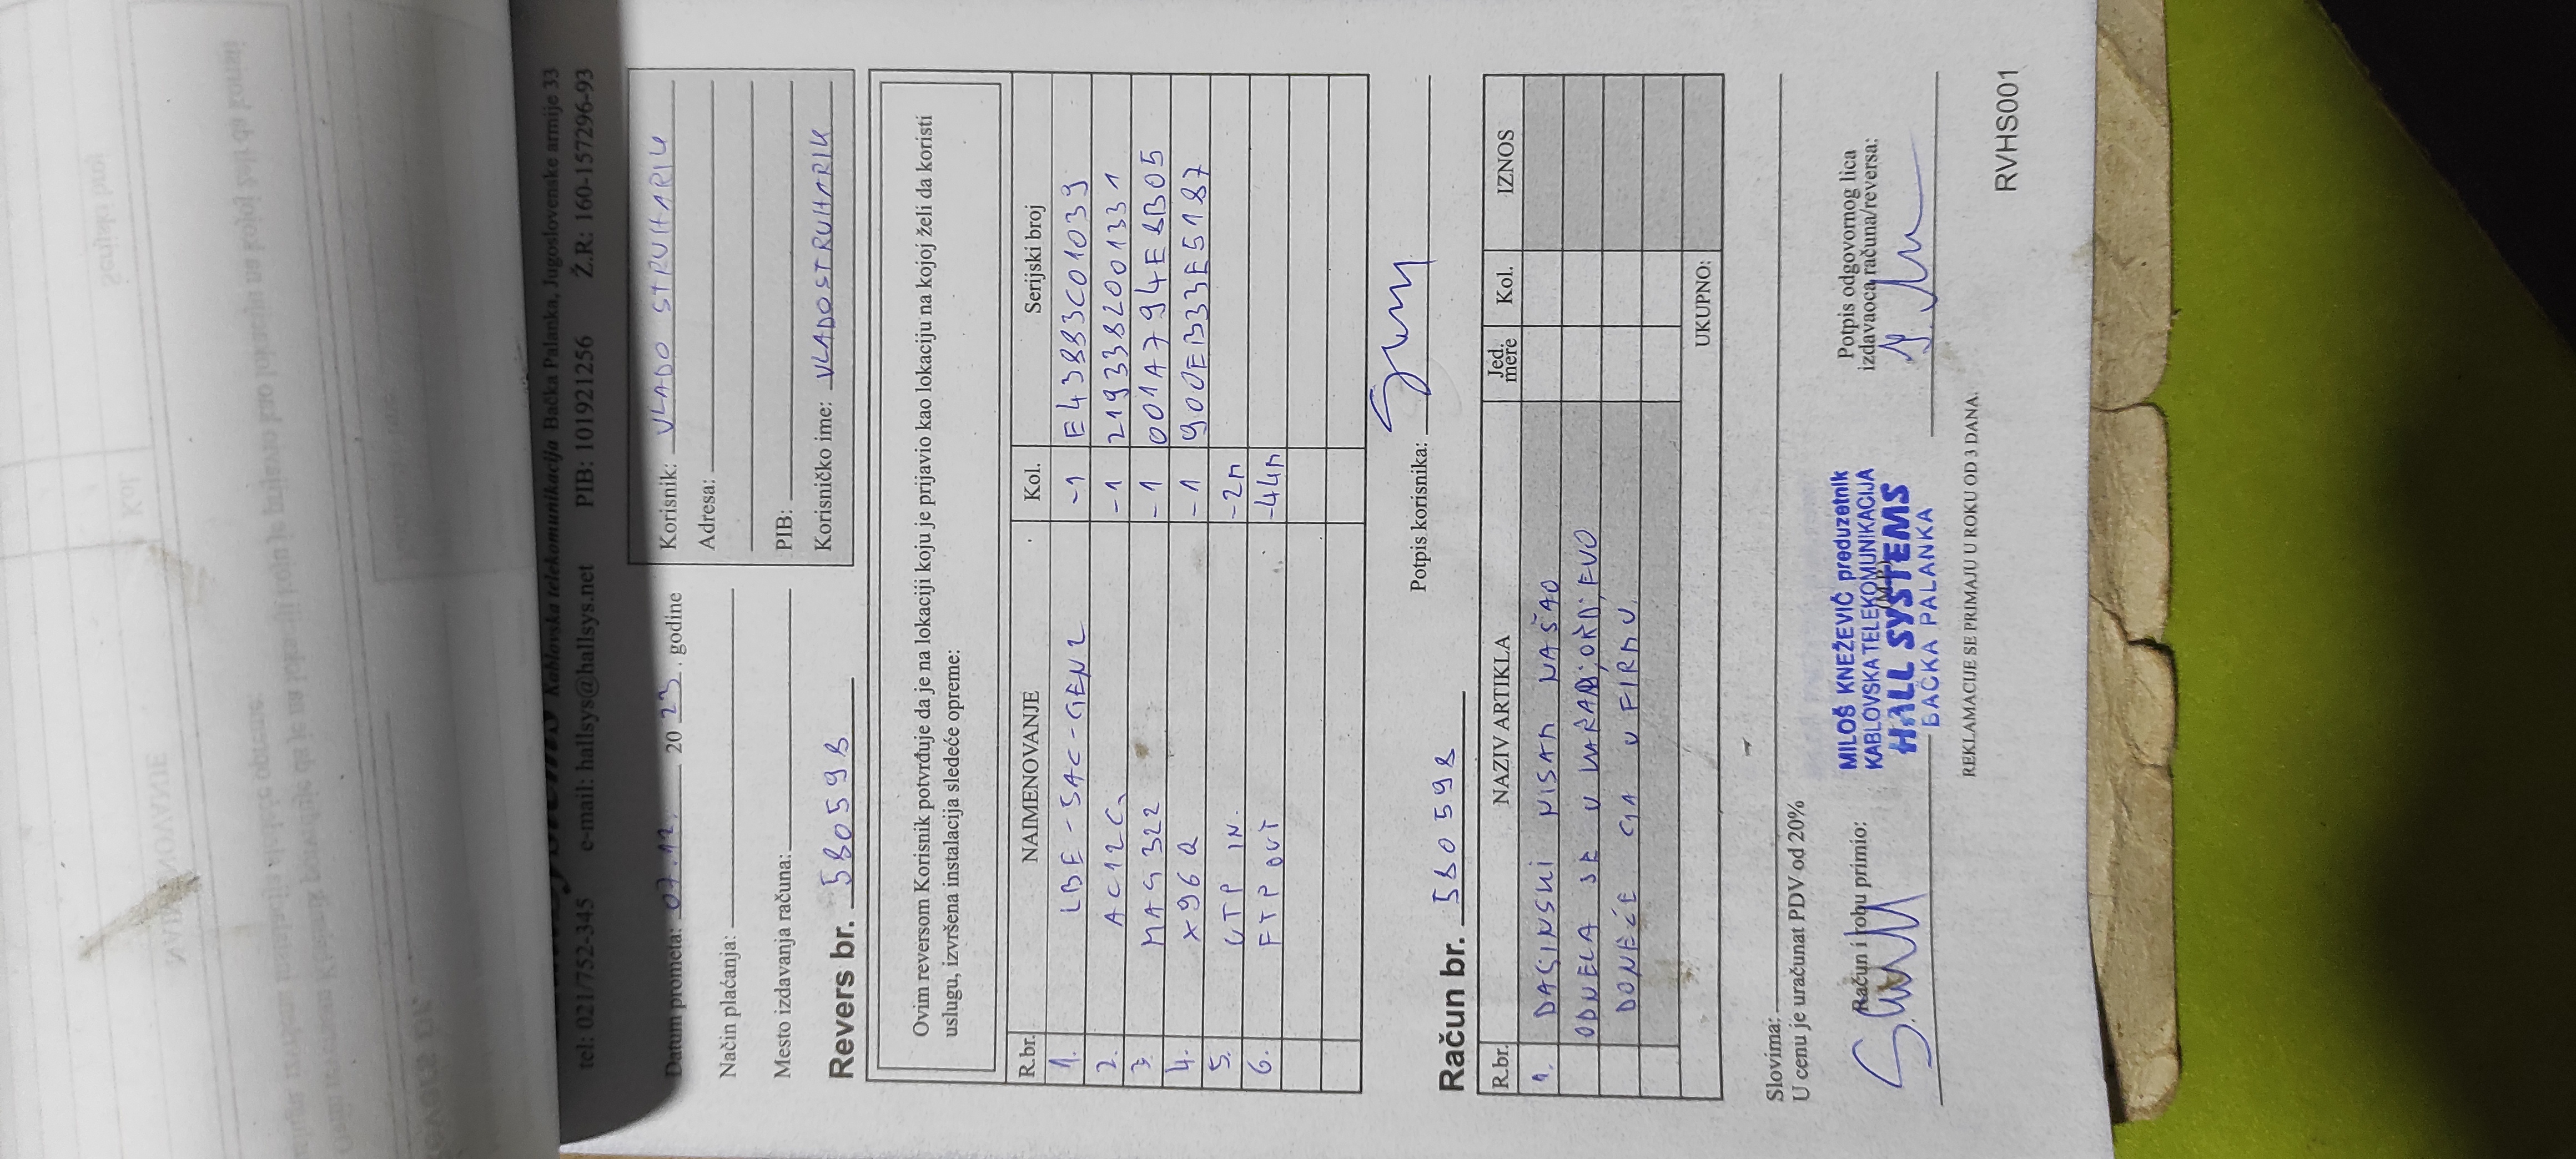 Kablovska telekomunikacija Bačka Palanka, Jugoslovenske armije 33
tel: 021/752-345 e-mail: hallsys@hallsys.net PIB: 101921256 Ž.R: 160-157296-93
Datum prometa: 07.12. 20 23. godine
Način plaćanja:
Mesto izdavanja računa:
Korisnik: VLADO STRUHARIK
Adresa:
PIB:
Korisničko ime: VLADOSTRUHARIK
Revers br. 580598
Ovim reversom Korisnik potvrđuje da je na lokaciji koju je prijavio kao lokaciju na kojoj želi da koristi
uslugu, izvršena instalacija sledeće opreme:
R.br. NAIMENOVANJE Kol. Serijski broj
1. LBE-5AC-GEN2 -1 E43883C01039
2. AC12G -1 2193382001331
3. MAG 322 -1 001A794E8B05
4. X96Q -1 900EB33E5187
5. UTP IN. -2m
6. FTP OUT -44m
Potpis korisnika:
Račun br. 580598
R.br. NAZIV ARTIKLA Jed. mere Kol. IZNOS
1. DAGINSKI NISAM NAŠAO
ODNELA SE U
DONEĆE GA U FIRMU
UKUPNO:
Slovima:
U cenu je uračunat PDV od 20%
Račun i robu primio:
MILOŠ KNEŽEVIĆ preduzetnik
KABLOVSKA TELEKOMUNIKACIJA
HALL SYSTEMS
BAČKA PALANKA
Potpis odgovornog lica
izdavaoca računa/reversa:
REKLAMACIJE SE PRIMAJU U ROKU OD 3 DANA.
RVHS001